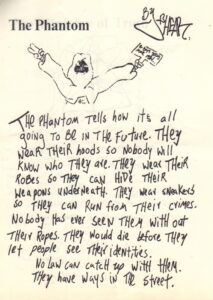 The Phantom
By
The Phantom tells how it's all
going to be in the future. They
wear their hoods so nobody will
know who they are. They wear their
robes so they can hide their
weapons underneath. They wear sneakers
so they can run from their crimes.
Nobody has ever seen them with out
their ropes. They would die before they
let people see their identities.
No law can catch up with them.
They have ways in the street.